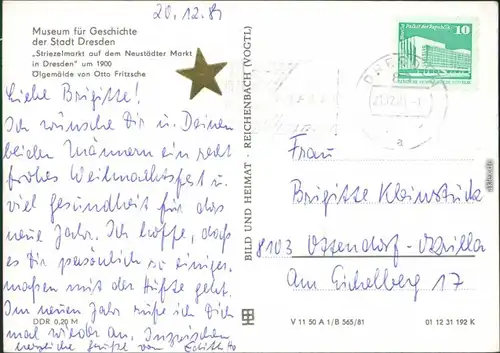 20.12.81
Museum für Geschichte
der Stadt Dresden
„Striezelmarkt auf dem Neustädter Markt
in Dresden" um 1900
Ölgemälde von Otto Fritzsche
Liebe Brigitte!
Ich wünsche Dir u. Deinen
beiden Männern ein recht
frohes Weihnachtsfest u.
viel Gesundheit für das
neue Jahr. Ich hoffe, daß
es Dir persönlich so einiger-
maßen mit der Hüfte geht.
Im neuen Jahr rufe ich Dich
mal wieder an. Inzwischen
herzliche Grüße von Edith
DDR 0,20 M
BILD UND HEIMAT · REICHENBACH (VOGTL)
Palast der Republik
10
DRESDEN
a
Frau
Brigitte Kleinstück
8103 Ottendorf-Okrilla
Am Eichelberg 17
V 11 50 A 1/B 565/81
01 12 31 192 K